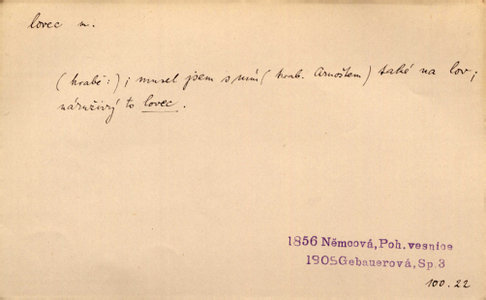 lovec m.
(hrabě:); musel jsem s ním (hrab. Arnoštem) také na lov;
náruživý to lovec.
1856 Němcová, Poh. vesnice
1905 Gebauerová, Sp. 3
100.22